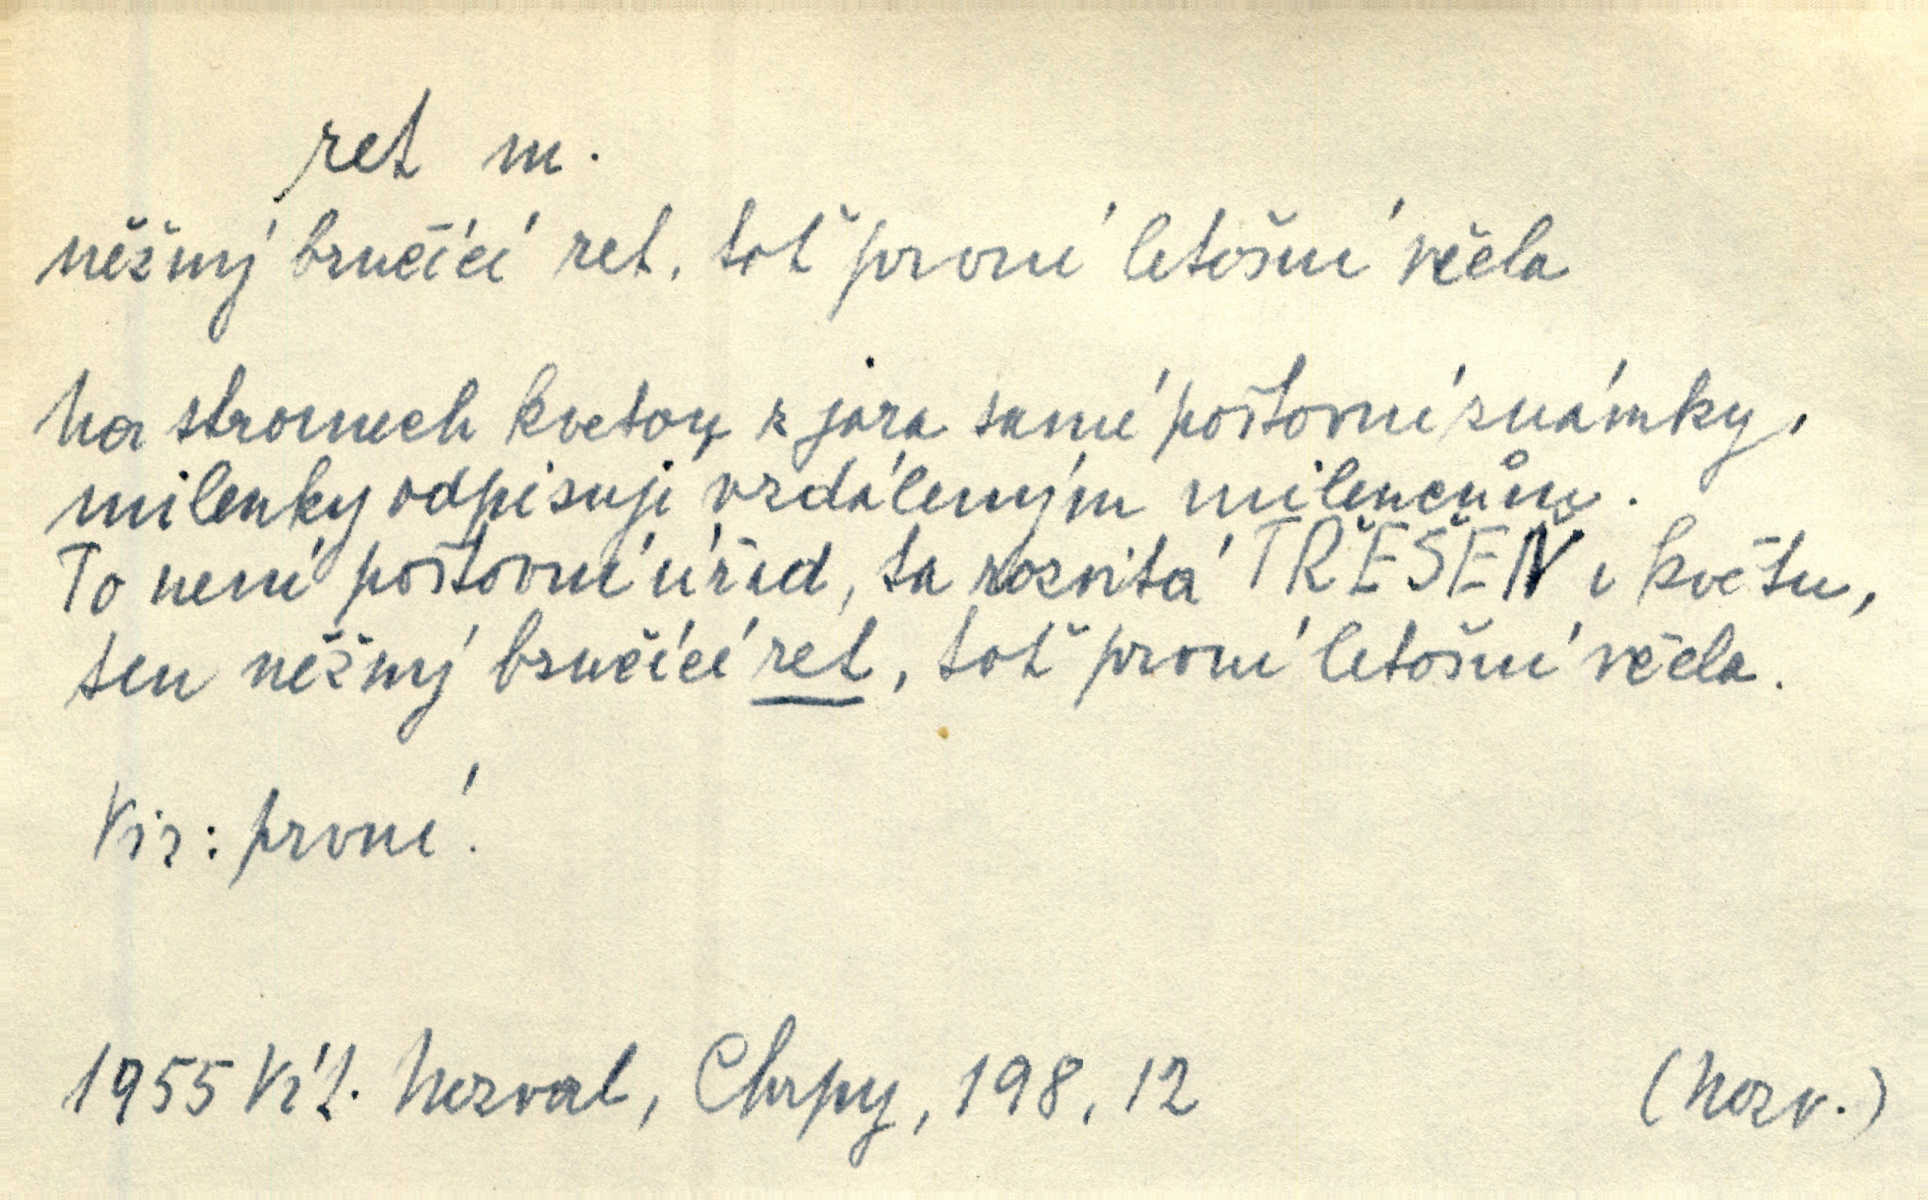 ret m.
něžný bručící ret, toť první letošní včela
Na stromech kvetou z jara samé poštovní známky,
milenky odpisují vzdáleným milencům.
To není poštovní úřad, ta rozvitá TŘEŠEŇ v květu,
ten něžný bručící ret, toť první letošní včela.
Viz: první.
1955 Vít. Nezval, Chrpy, 198, 12 (Nezv.)